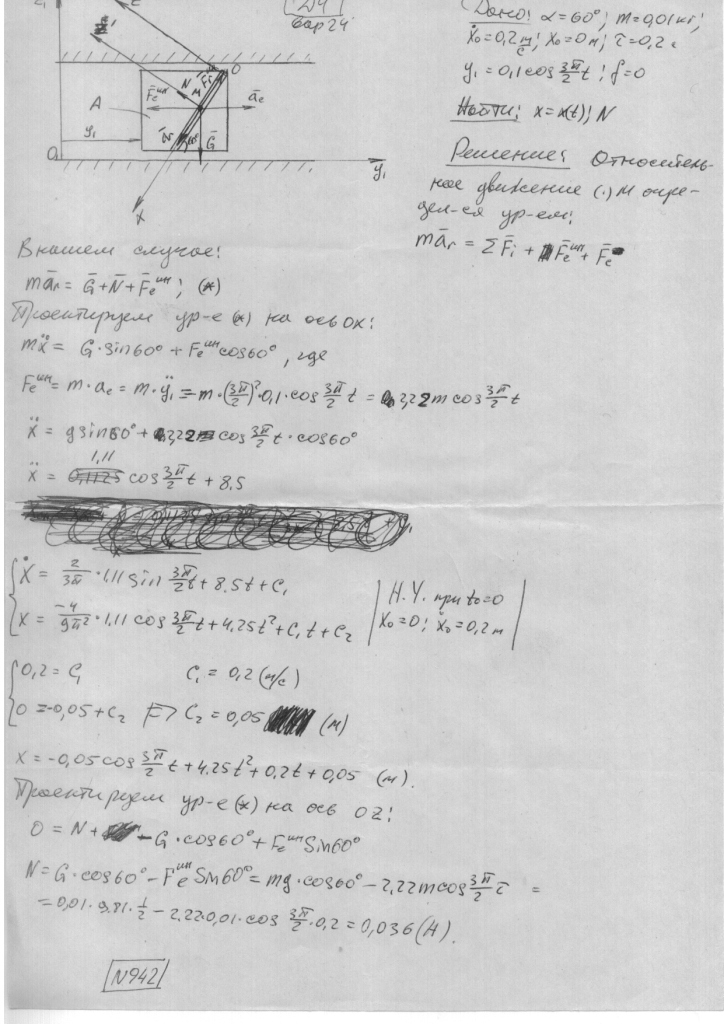 Д4
Вар 24
Дано: α=60°; m=0,01кг;
ẋ₀=0,2 м/с; x₀=0м; τ=0,2с
y₁=0,1cos 3π/2 t; f=0
Найти: x=x(t); N
Решение: Относитель-
ное движение (·) М опре-
дел-ся ур-ем:
mā_r = ΣF̄i + F̄e^ин + F̄c
z₁
A
N
M
O
F̄e^ин
ā_e
y₁
N̄
60°
Ḡ
O₁
y₁
x
В нашем случае:
mā_r = Ḡ+N̄+F̄e^ин; (*)
Проектируем ур-е (*) на ось OX:
mẍ = G·sin60° + Fe^ин cos60°, где
Fe^ин = m·a_e = m·ÿ₁ = m·(3π/2)²·0,1·cos 3π/2 t = 2,22m cos 3π/2 t
ẍ = gsin60° + 2,22 cos 3π/2 t·cos60°
1,11
ẍ = cos 3π/2 t + 8,5
ẋ = 2/3π ·1,11 sin 3π/2 t + 8,5t + C₁
x = -4/9π² ·1,11 cos 3π/2 t + 4,25t² + C₁t + C₂
Н.У. при t₀=0
x₀=0; ẋ₀=0,2м
0,2 = C₁ C₁ = 0,2 (м/с)
0 = -0,05+C₂ => C₂ = 0,05 (м)
x = -0,05cos 3π/2 t + 4,25t² + 0,2t + 0,05 (м).
Проектируем ур-е (*) на ось OZ:
0 = N + - G·cos60° + Fe^ин Sin60°
N = G·cos60° - Fe^ин Sin60° = mg·cos60° - 2,22mcos 3π/2 τ =
= 0,01·9,81·1/2 - 2,22·0,01·cos 3π/2·0,2 = 0,036 (Н).
N942